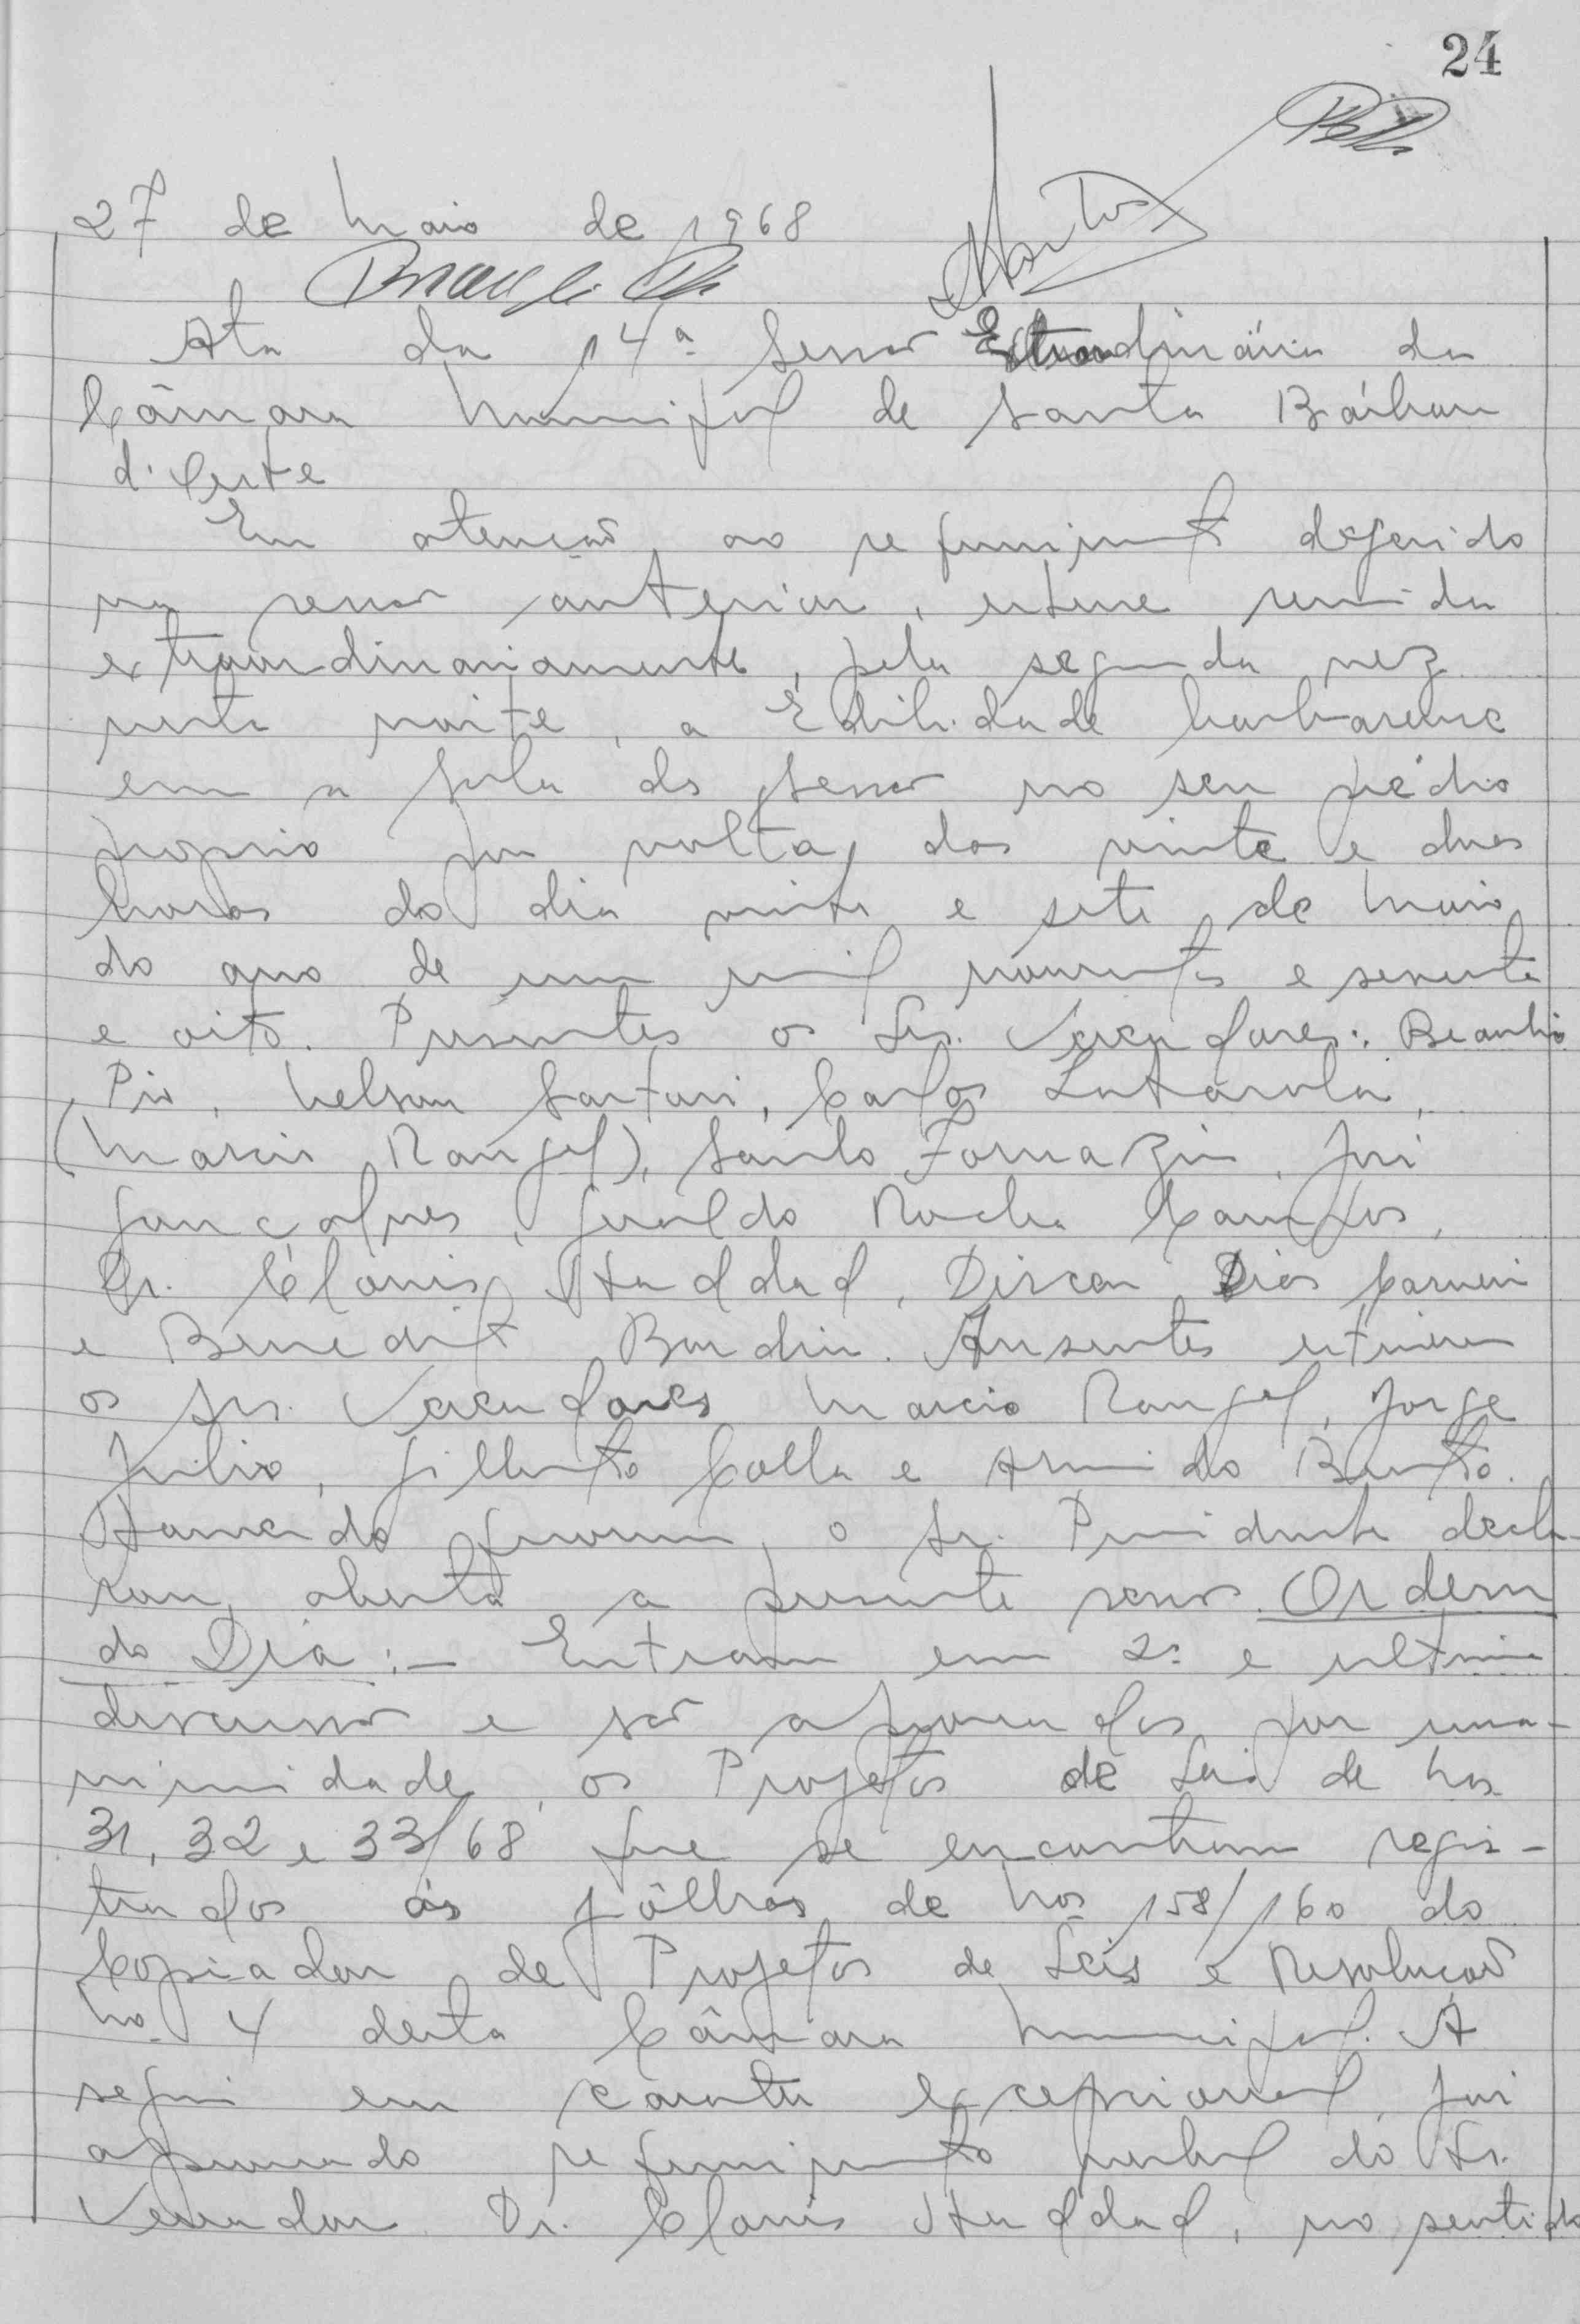 24
27 de Maio de 1968
Ata da 14ª Sessão Extraordinária da
Câmara Municipal de Santa Bárbara
d'Oeste
Em atenção ao requerimento deferido
na sessão anterior, esteve reunida
extraordinariamente, pela segunda vez
nesta noite, a Edilidade barbarense
em a sala de sessão no seu prédio
proprio por volta das vinte e duas
horas do dia vinte e sete de Maio
do ano de um mil novecentos e sessenta
e oito. Presentes os Srs. Vereadores: Braulio
Pio, Nelson Sartori, Carlos Lutarola,
(Márcio Rangel), Santo Fornazin, José
Gonçalves, Geraldo Rocha Campos,
Dr. Clovis Haddad, Dirceu Dias Carneiro
e Benedito Bordin. Ausentes estiveram
os Srs. Vereadores Marcio Rangel, Jorge
Julio, Gilberto Colla e Armindo Bento.
Havendo quorum, o Sr. Presidente decla-
rou aberta a presente sessão. Ordem
do Dia:- Entram em 2ª e ultima
discussão e são aprovados por una-
nimidade, os Projetos de Lei de nos
31, 32 e 33/68 que se encontram regis-
trados ás fôlhas de nos 158/160 do
Copiador de Projetos de Leis e Resolução
no. 4 desta Câmara Municipal. A
seguir em carater excepcional, foi
aprovado requerimento verbal do Sr.
Vereador Dr. Clovis Haddad, no sentido